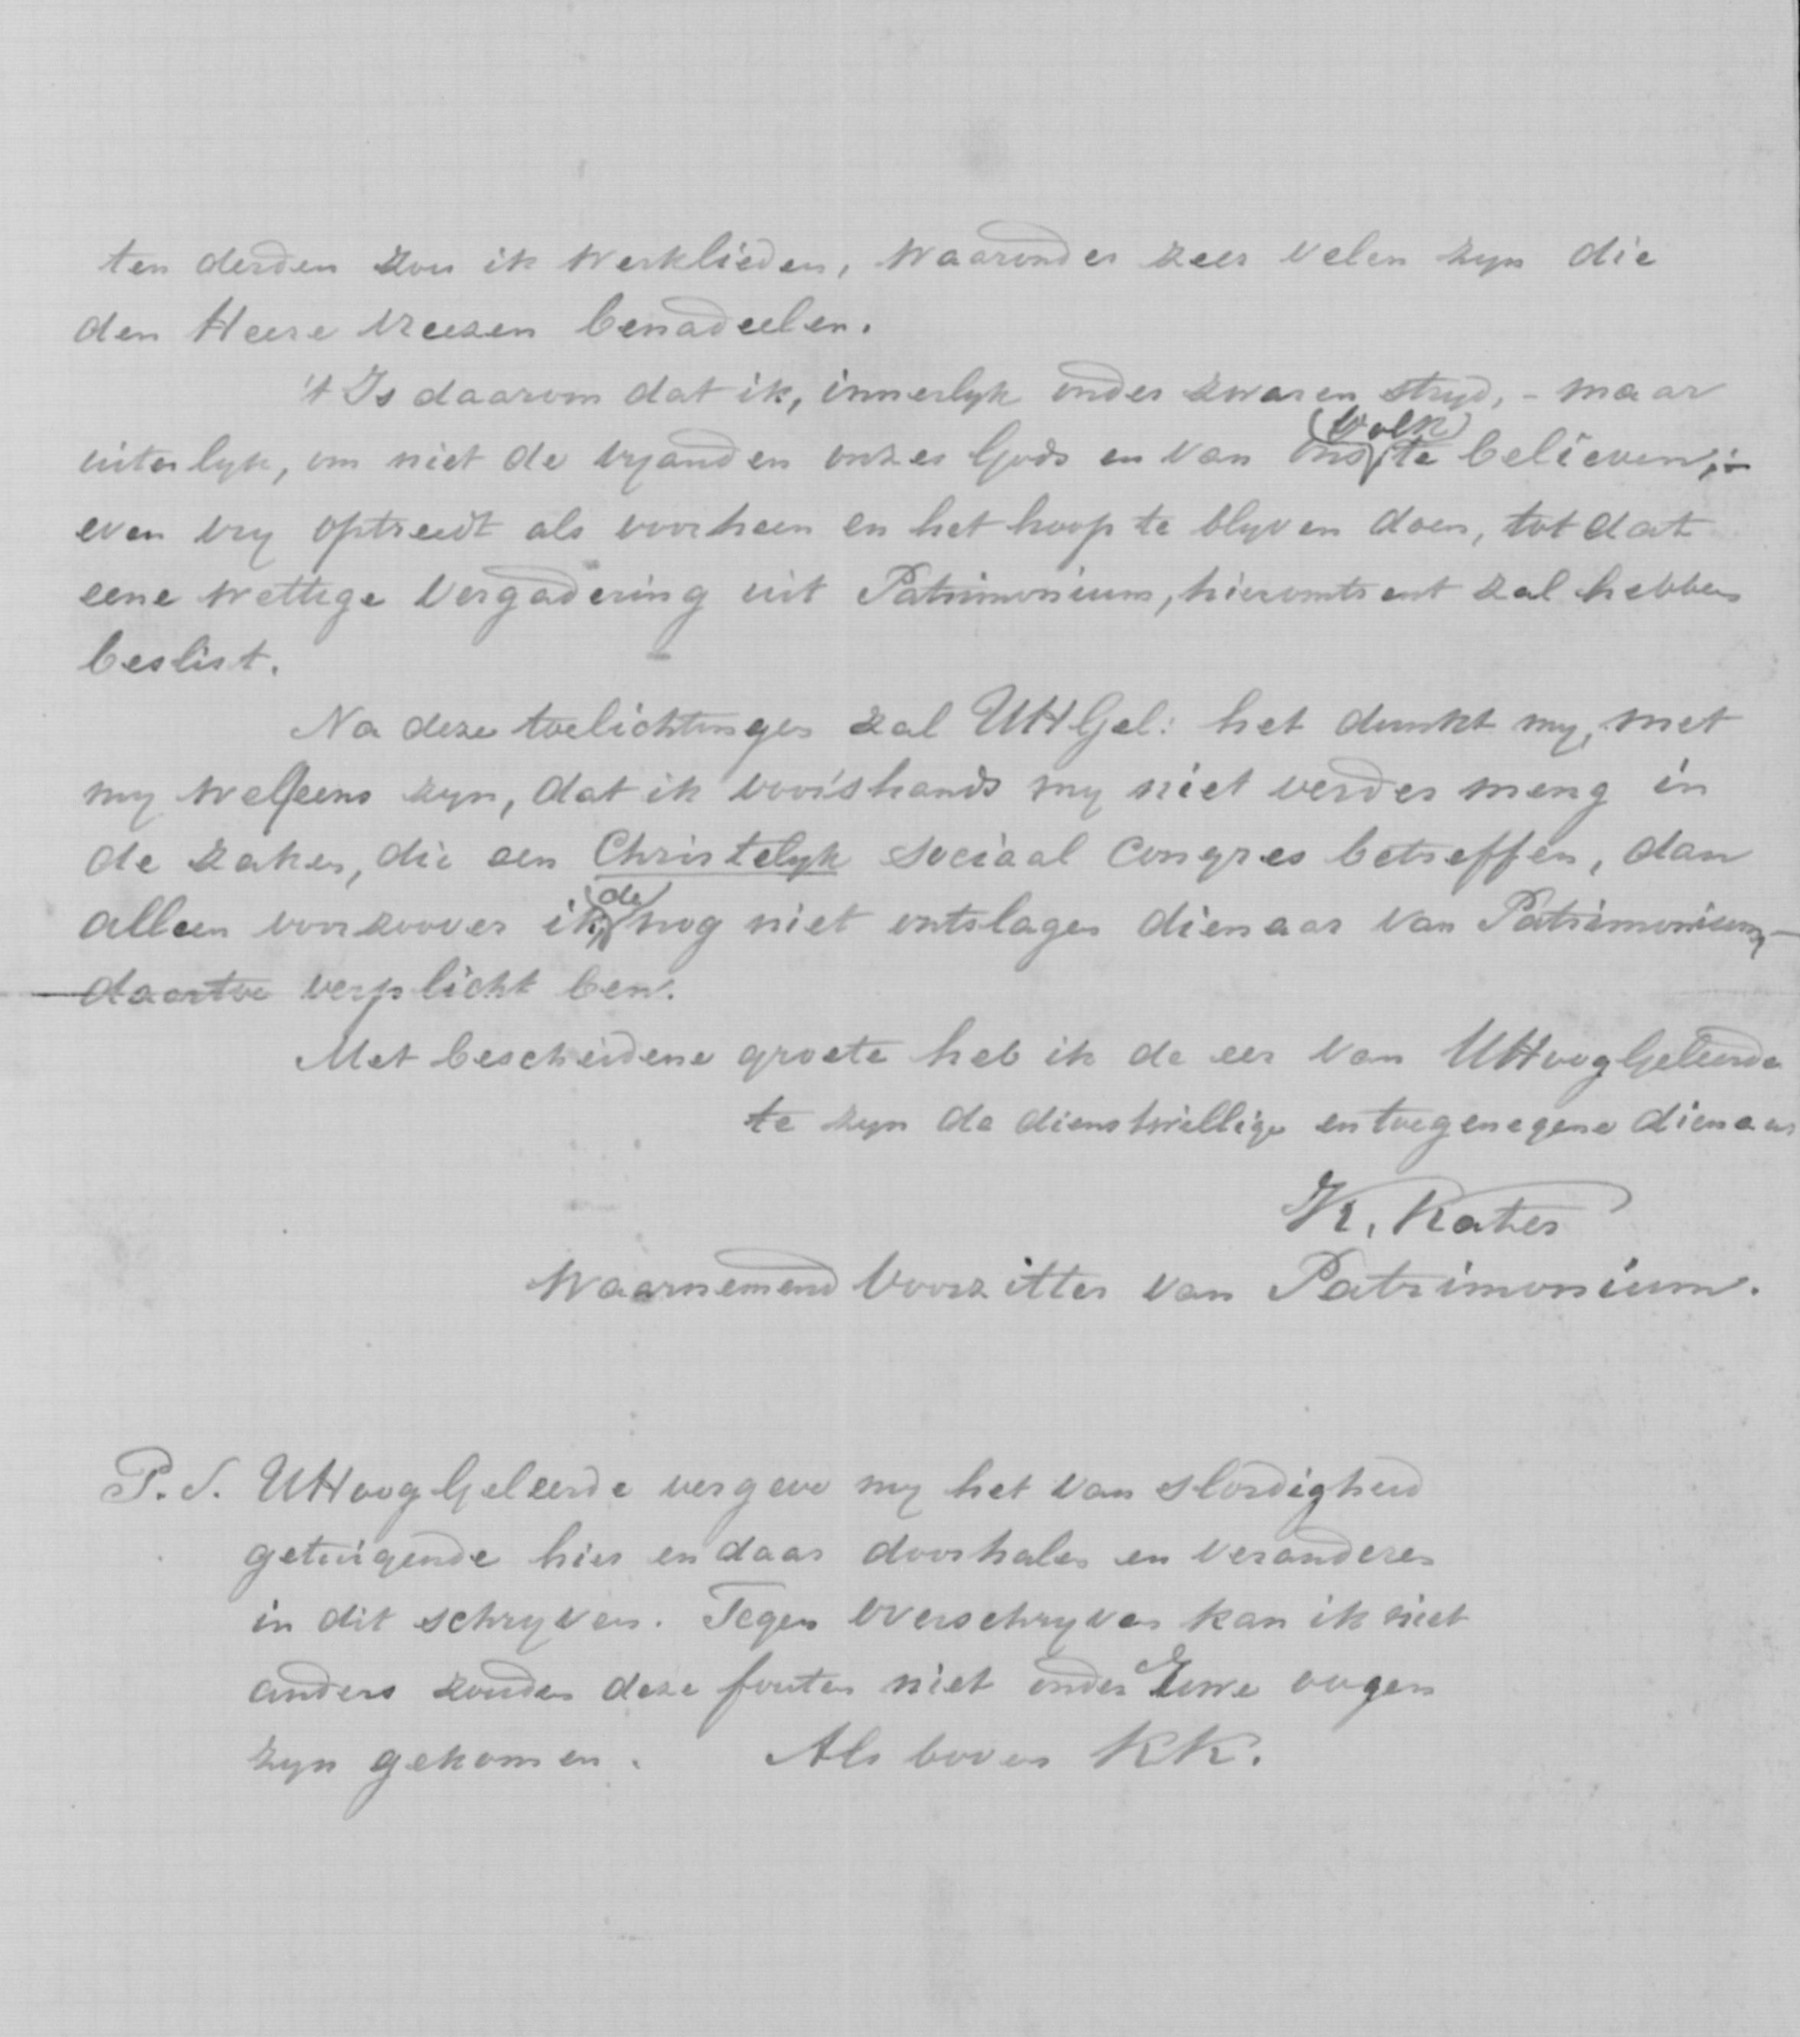 ten derden zou ik werklieden, waaronder zeer velen zyn die
den Heere vreezen benadeelen.
't Is daarom dat ik, innerlyk onder zwaren stryd, - maar
uiterlyk, om niet de vyanden onzes Gods en van ons volk te believen, -
even vry optreedt als voorheen en het hoop te blyven doen, tot dat
eene wettige vergadering uit Patrimonium, hieromtrent zal hebben
beslist.
Na deze toelichtingen zal UHGel: het dunkt my, met
my weleens zyn, dat ik voorshands my niet verder meng in
de zaken, die een Christelyk Sociaal Congres betreffen, dan
alleen voorzoover ik, de nog niet ontslagen dienaar van Patrimonium, -
daartoe verplicht ben.
Met bescheidene groete heb ik de eer van UHoogGeleerde
te zyn de dienstwillige en toegenegene dienaar
K. Kater
Waarnemend Voorzitter van Patrimonium.
P.S. UHoogGeleerde vergeve my het van slordigheid
getuigende hier en daar doorhalen en veranderen
in dit schryven. Tegen overschryven kan ik niet
anders zouden deze fouten niet onder Uwe oogen
zyn gekomen. Als boven KK.